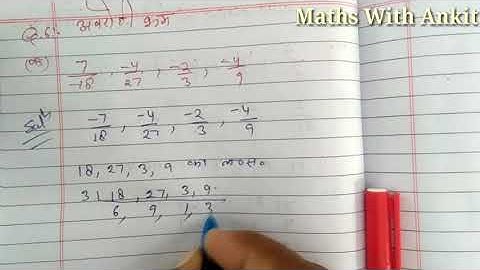 Maths With Ankit
Q.6. अवरोही क्रम
(क) 7/-18, -4/27, -2/3, -4/9
Sol. -7/18, -4/27, -2/3, -4/9
18, 27, 3, 9 का ल०स०
3 | 18, 27, 3, 9
6, 9, 1, 3